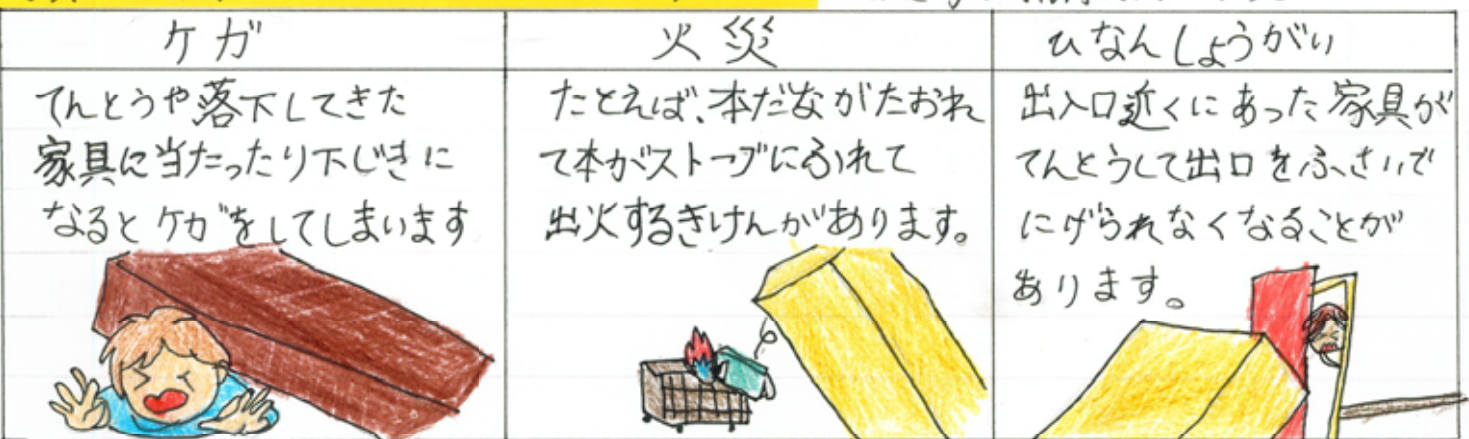 ケガ
てんとうや落下してきた
家具に当たったり下じきに
なるとケガをしてしまいます
火災
たとえば、本だながたおれ
て本がストーブにふれて
出火するきけんがあります。
ひなんしょうがい
出入口近くにあった家具が
てんとうして出口をふさいで
にげられなくなることが
あります。